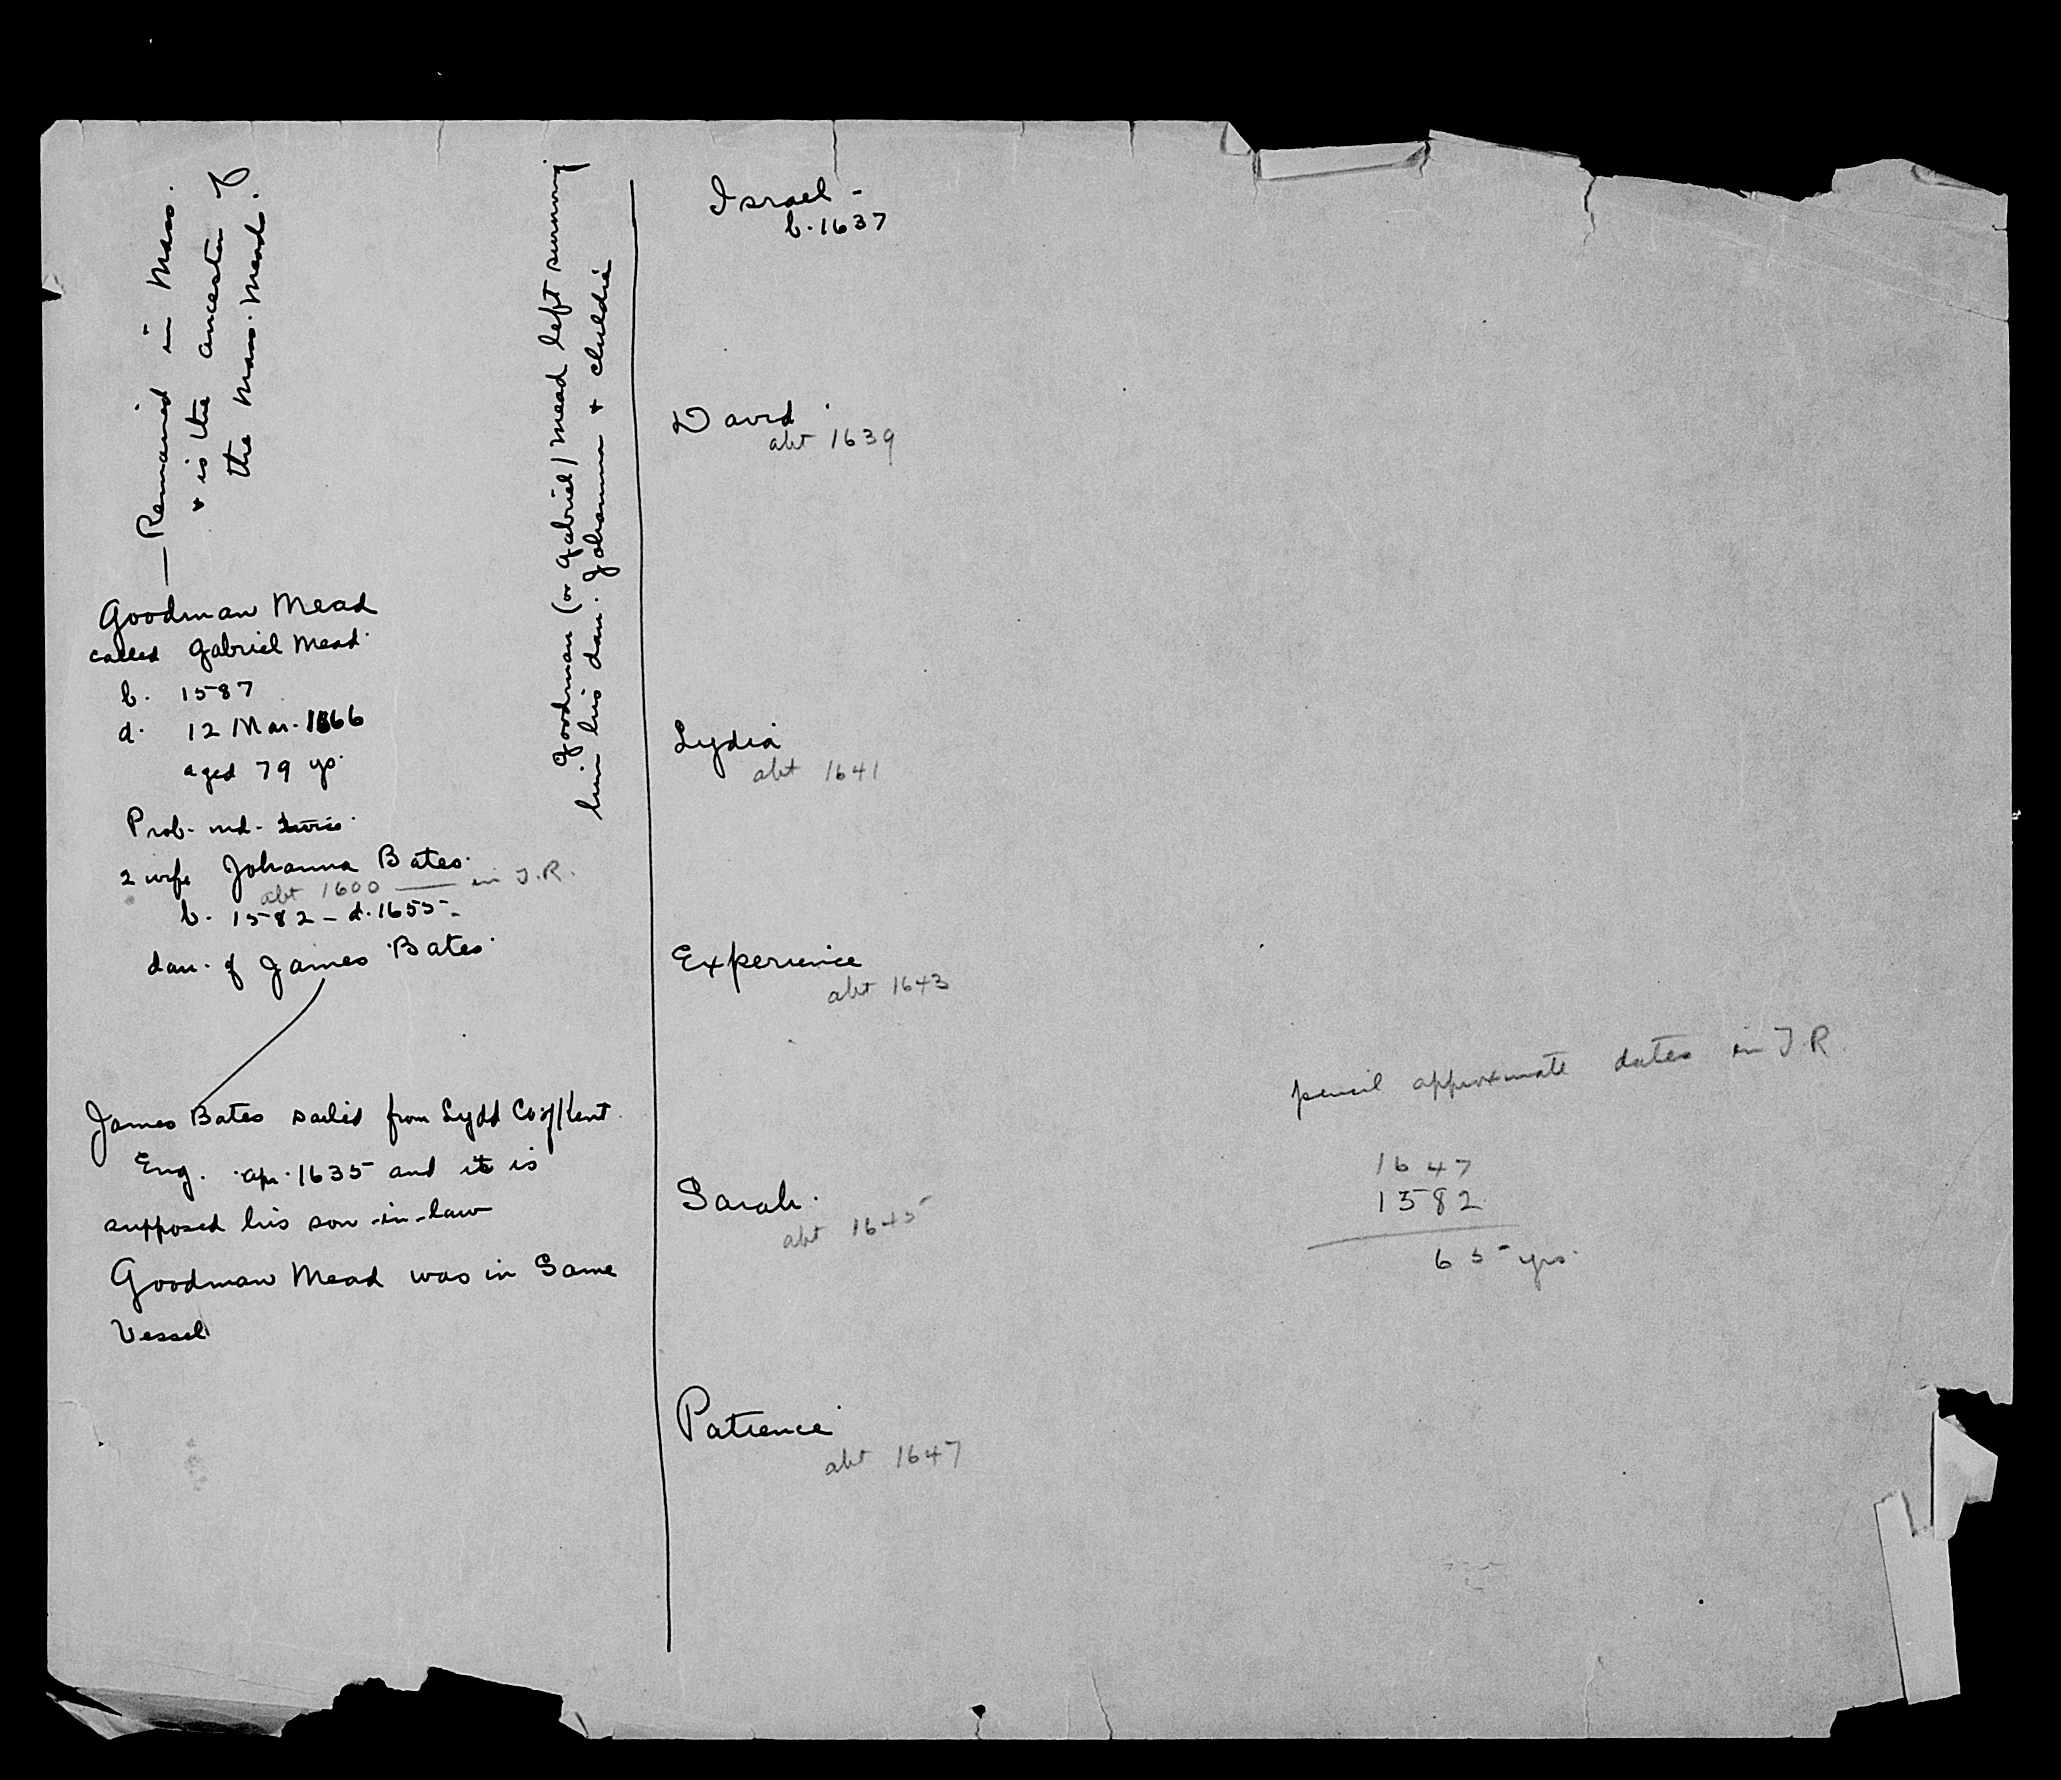 — Remained in Mass.
+ is the ancestor of
the Mass. Mead.
Goodman Mead
called Gabriel Mead.
b. 1587
d. 12 Mar. 1666
aged 79 ys.
Prob. md. twice.
2 wife Johanna Bates.
abt 1600 — in T.R.
b. 1582 - d. 1655-
dau. of James Bates.
James Bates sailed from Lydd Co of Kent.
Eng. Apr. 1635 and it is
supposed his son-in-law
Goodman Mead was in Same
Vessel
Goodman (or Gabriel) Mead left surviving
him his dau. Johanna + childre
Israel -
b. 1637
David.
abt 1639
Lydia
abt 1641
Experience
abt 1643
Sarah.
abt 1645
Patience
abt 1647
pencil approximate dates in T.R.
1647
1582
65 yrs.